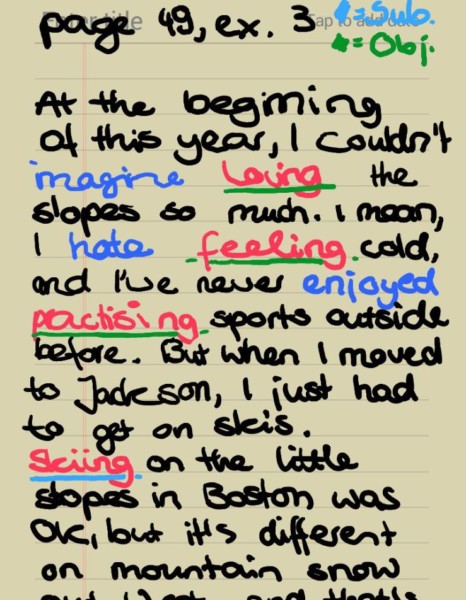 page 49, ex. 3
# = Sub.
# = Obj.
At the begining
of this year, I couldn't
imagine loving the
slopes so much. I mean,
I hate feeling cold,
and I've never enjoyed
practising sports outside
before. But when I moved
to Jackson, I just had
to get on skis.
Skiing on the little
slopes in Boston was
OK, but it's different
on mountain snow
out West, and that's